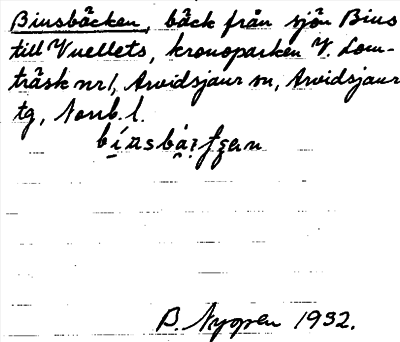 Biusbäcken, bäck från sjön Bius
till Vuellets, kronoparken V. Lom-
träsk nr 1, Arvidsjaur sn, Arvidsjaur
tg, Norrb. l.
B. Nygren 1932.